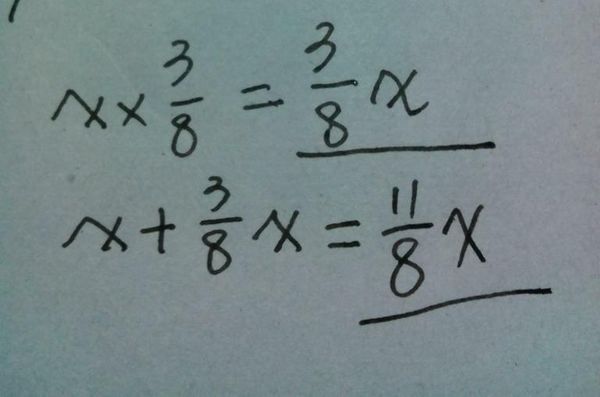 x × 3/8 = 3/8 x
x + 3/8 x = 11/8 x